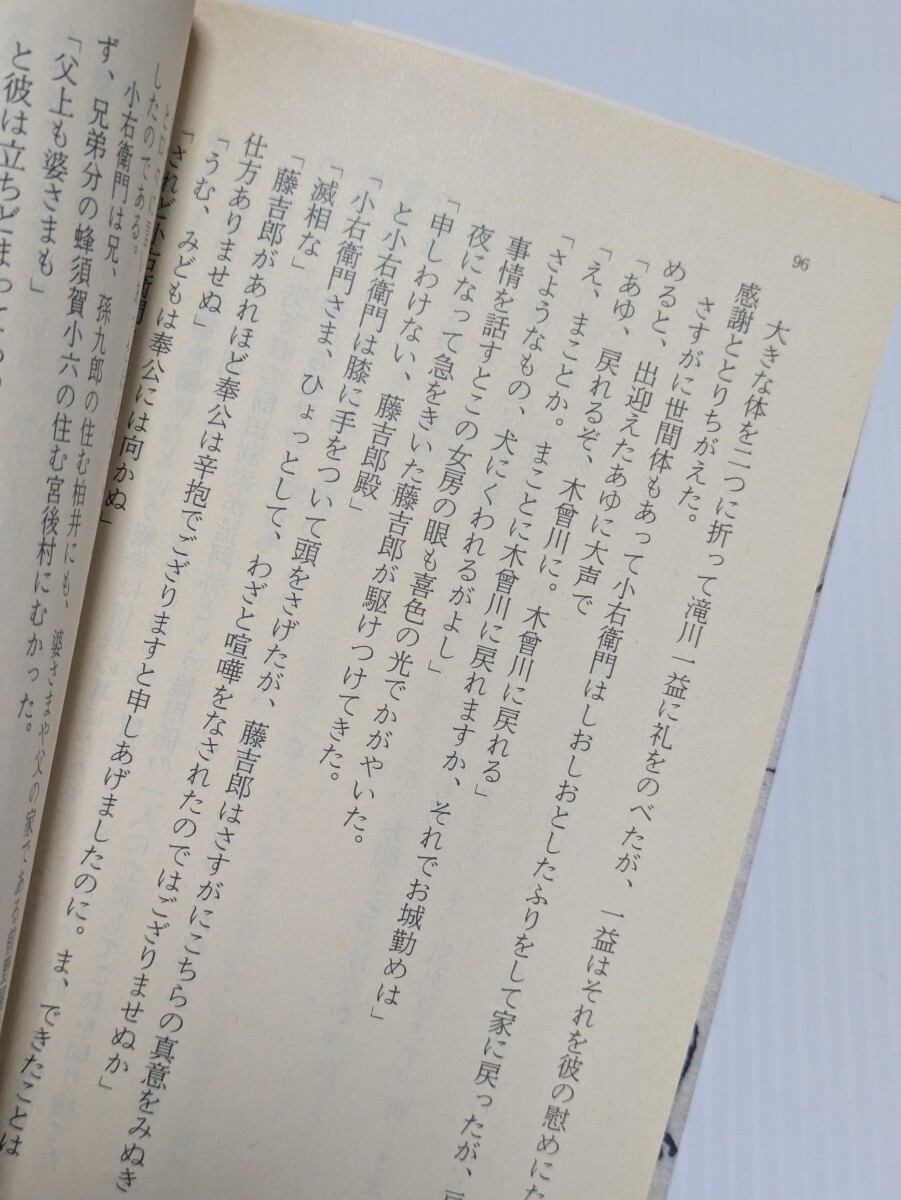 96
大きな体を二つに折って滝川一益に礼をのべたが、一益はそれを彼の慰めにた
感謝ととりちがえた。
さすがに世間体もあって小右衛門はしおしおとしたふりをして家に戻ったが、戸
めると、出迎えたあゆに大声で
「あゆ、戻れるぞ、木曾川に。木曾川に戻れる」
「え、まことか。まことに木曾川に戻れますか、それでお城勤めは」
「さようなもの、犬にくわれるがよし」
事情を話すとこの女房の眼も喜色の光でかがやいた。
夜になって急をきいた藤吉郎が駆けつけてきた。
「申しわけない、藤吉郎殿」
と小右衛門は膝に手をついて頭をさげたが、藤吉郎はさすがにこちらの真意をみぬき
「小右衛門さま、ひょっとして、わざと喧嘩をなされたのではござりませぬか」
「滅相な」
「藤吉郎があれほど奉公は辛抱でござりますと申しあげましたのに。ま、できたことは
仕方ありませぬ」
「うむ、みどもは奉公には向かぬ」
「されど小右衛門
したのである。
小右衛門は兄、孫九郎の住む柏井にも、婆さまや父の家である
ず、兄弟分の蜂須賀小六の住む宮後村にむかった。
「父上も婆さまも」
と彼は立ちどまって